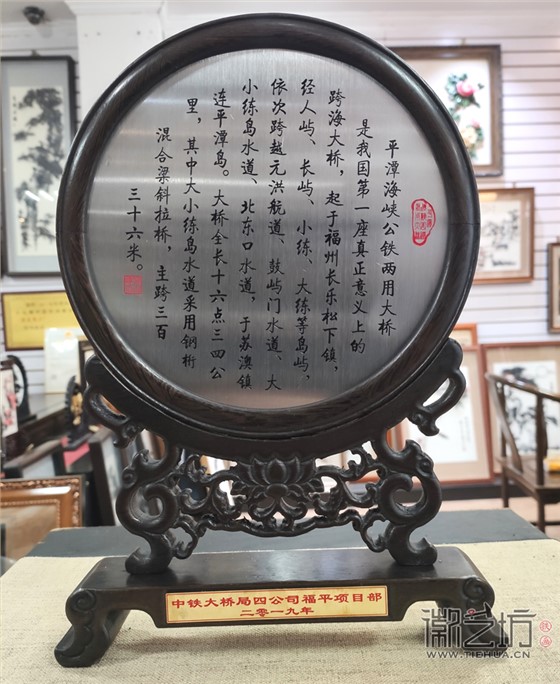 平潭海峡公铁两用大桥
是我国第一座真正意义上的
跨海大桥，起于福州长乐松下镇，
经人屿、长屿、小练、大练等岛屿，
依次跨越元洪航道、鼓屿门水道、大
小练岛水道、北东口水道，于苏澳镇
连平潭岛。大桥全长十六点三四公
里，其中大小练岛水道采用钢桁
混合梁斜拉桥，主跨三百
三十六米。
中铁大桥局四公司福平项目部
二零一九年
徽艺坊
铁画
WWW.TIEHUA.CN